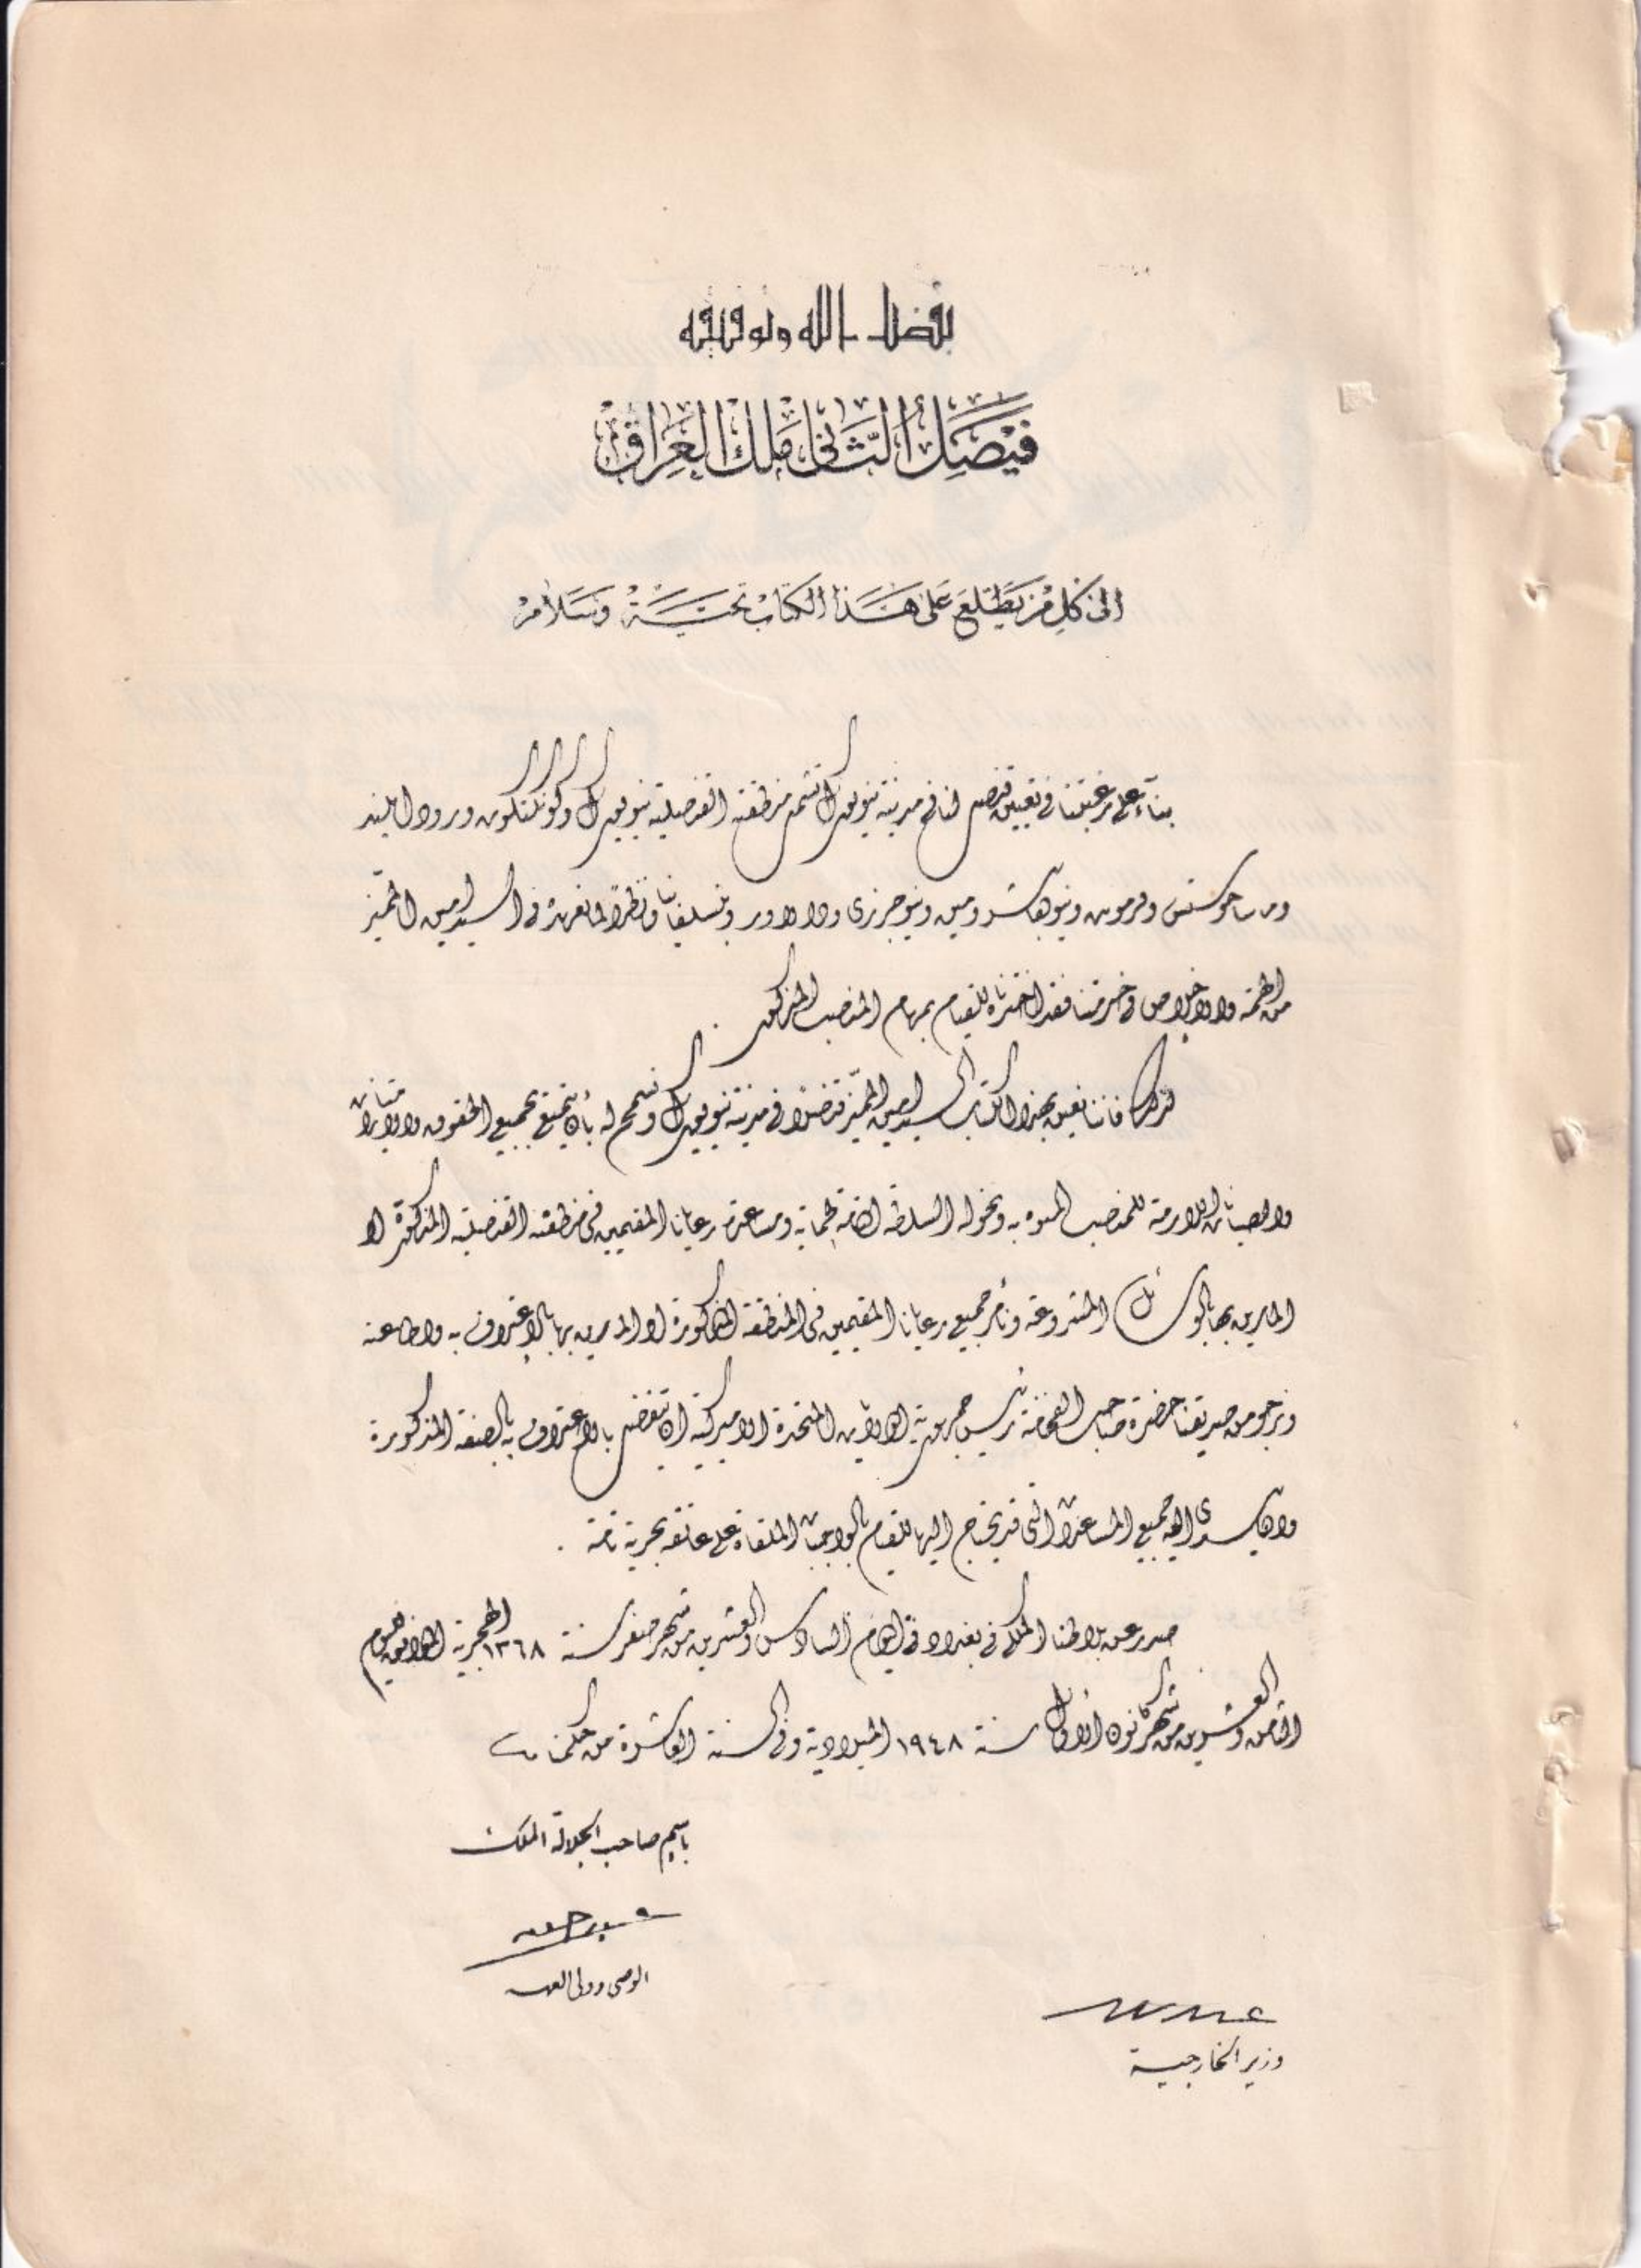 بفضل الله وتوفيقه
فيصل الثاني ملك العراق
الى كل من يطلع على هذا الكتاب تحية وسلام
بناء على رغبتنا في تعيين قنصل لنا في مدينة نيويورك تشمل منطقته القنصلية نيويورك وكونكتكوت ورود ايلند
وماساجوستس وفرمونت ونيوهامشر ومين ونيوجرزي ودلاور وبنسلفانيا ونظرا لما نعهده في السيد امين المميز
من الهمة والاخلاص في خدمتنا فقد اخترناه للقيام بمهام المنصب المذكور .
لذلك فاننا نعين بهذا الكتاب السيد امين المميز قنصلا في مدينة نيويورك ونسمح له بأن يتمتع بجميع الحقوق والامتيازات
والصيانات اللازمة للمنصب المنوه به ونخوله السلطة التامة لحماية ومساعدة رعايانا المقيمين في منطقته القنصلية المذكورة او
المارين بها بالوسائل المشروعة ونأمر جميع رعايانا المقيمين في المنطقة المذكورة او المارين بها بالاعتراف به واطاعته
ونرجو من صديقنا حضرة صاحب الفخامة رئيس جمهورية الولايات المتحدة الاميركية ان يتفضل بالاعتراف به بالصفة المذكورة
وان يسدى اليه جميع المساعدات التي قد يحتاج اليها للقيام بالواجبات الملقاة على عاتقه بحرية تامة .
صدر عن بلاطنا الملكي في بغداد في اليوم السادس والعشرين من شهر صفر سنة ١٣٦٨ الهجرية الموافق لليوم
الثامن والعشرين من شهر كانون الاول سنة ١٩٤٨ الميلادية وفي السنة العاشرة من حكمنا
باسم صاحب الجلالة الملك
الوصي وولي العهد
وزير الخارجية